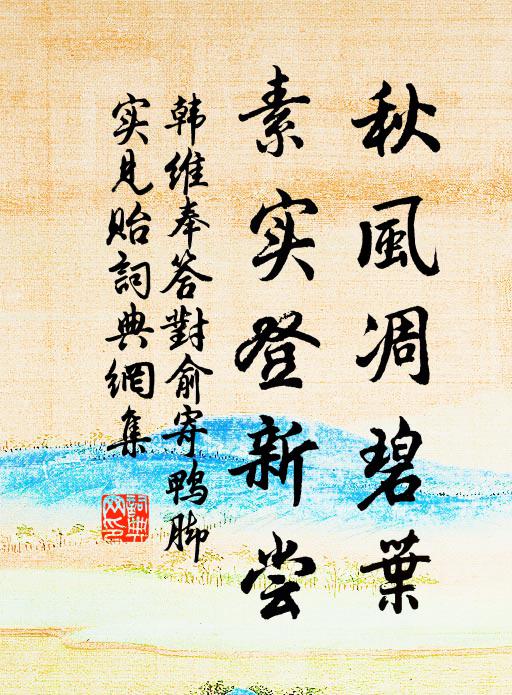 秋風凋碧葉
素实登新尝
韩维奉答對俞寄鴨脚
实見贻詞典網集
詞典